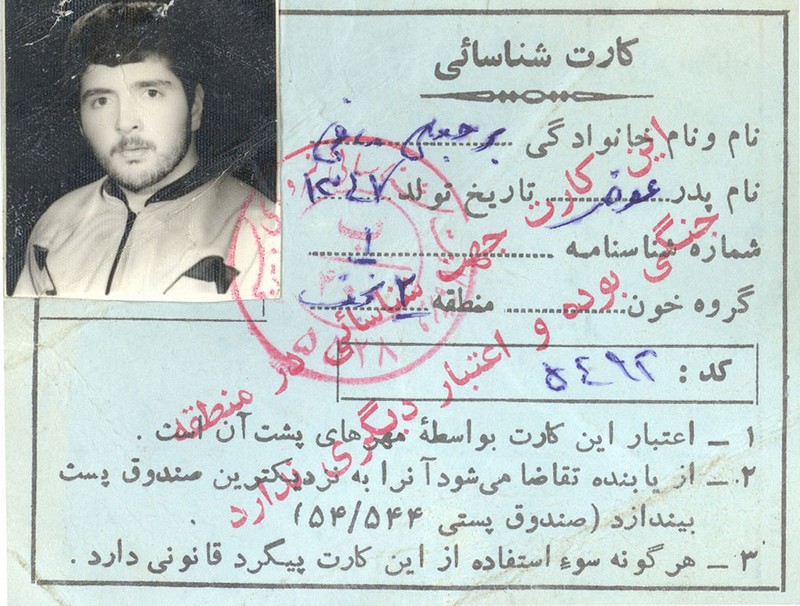 کارت شناسائی
نام و نام خانوادگی رجبعلی
نام پدر عوض تاریخ تولد ۱۳۴۷
شماره شناسنامه ۱
گروه خون منطقه ۲ نجف
کد : ۵۴۹۲
۱ ـ اعتبار این کارت بواسطهٔ مهرهای پشت آن است .
۲ ـ از یابنده تقاضا می‌شود آنرا به نزدیکترین صندوق پست
بیندازد (صندوق پستی ۵۴/۵۴۴) .
۳ ـ هرگونه سوء استفاده از این کارت پیگرد قانونی دارد .
این کارت جهت شناسائی در منطقه
جنگی بوده و اعتبار دیگری ندارد